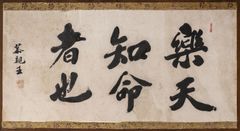 樂天
知命
者也